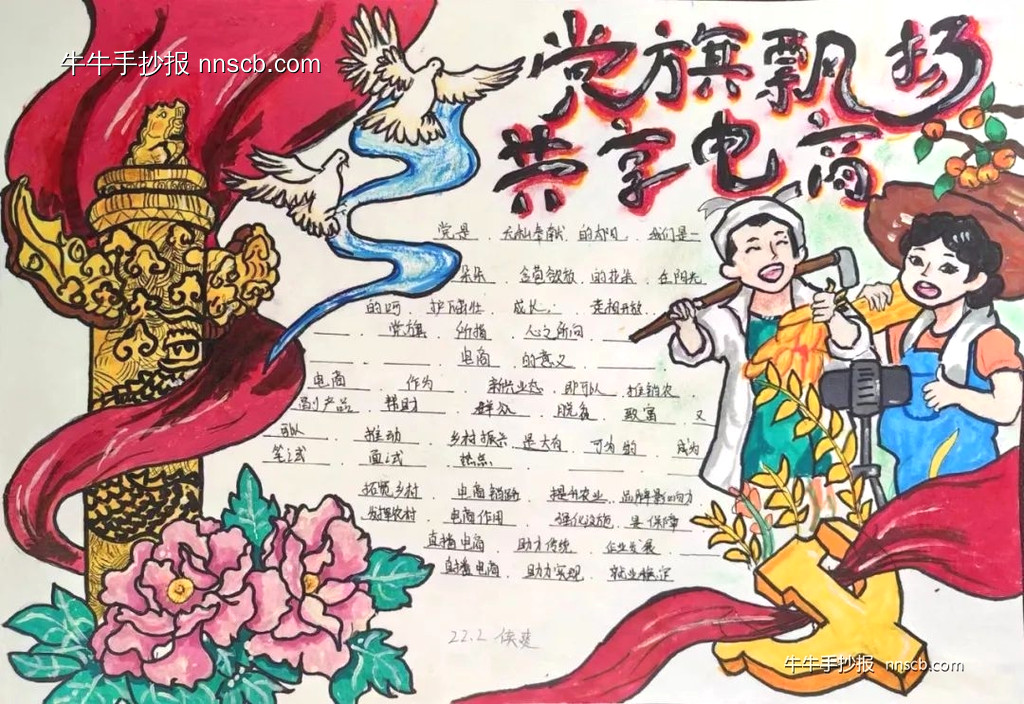 牛牛手抄报 nnscb.com
党旗飘扬
共享电商
党是 无私奉献 的太阳 我们是一
朵朵 含苞欲放 的花朵 在阳光
的 成长
党旗 所指 心之所向
电商 的意义
电商 作为 新兴业态 即可以 推销农
副产品 帮助 群众 脱贫 致富 又
可以 推动 乡村振兴 是大有 可为的 成为
笔试 面试 热点
拓宽乡村 电商销路 提升农业 品牌影响力
发挥农村 电商作用 强化设施 保障
直播电商 助力传统 企业发展
直播电商 助力实现 就业稳定
22.2
牛牛手抄报 nnscb.com